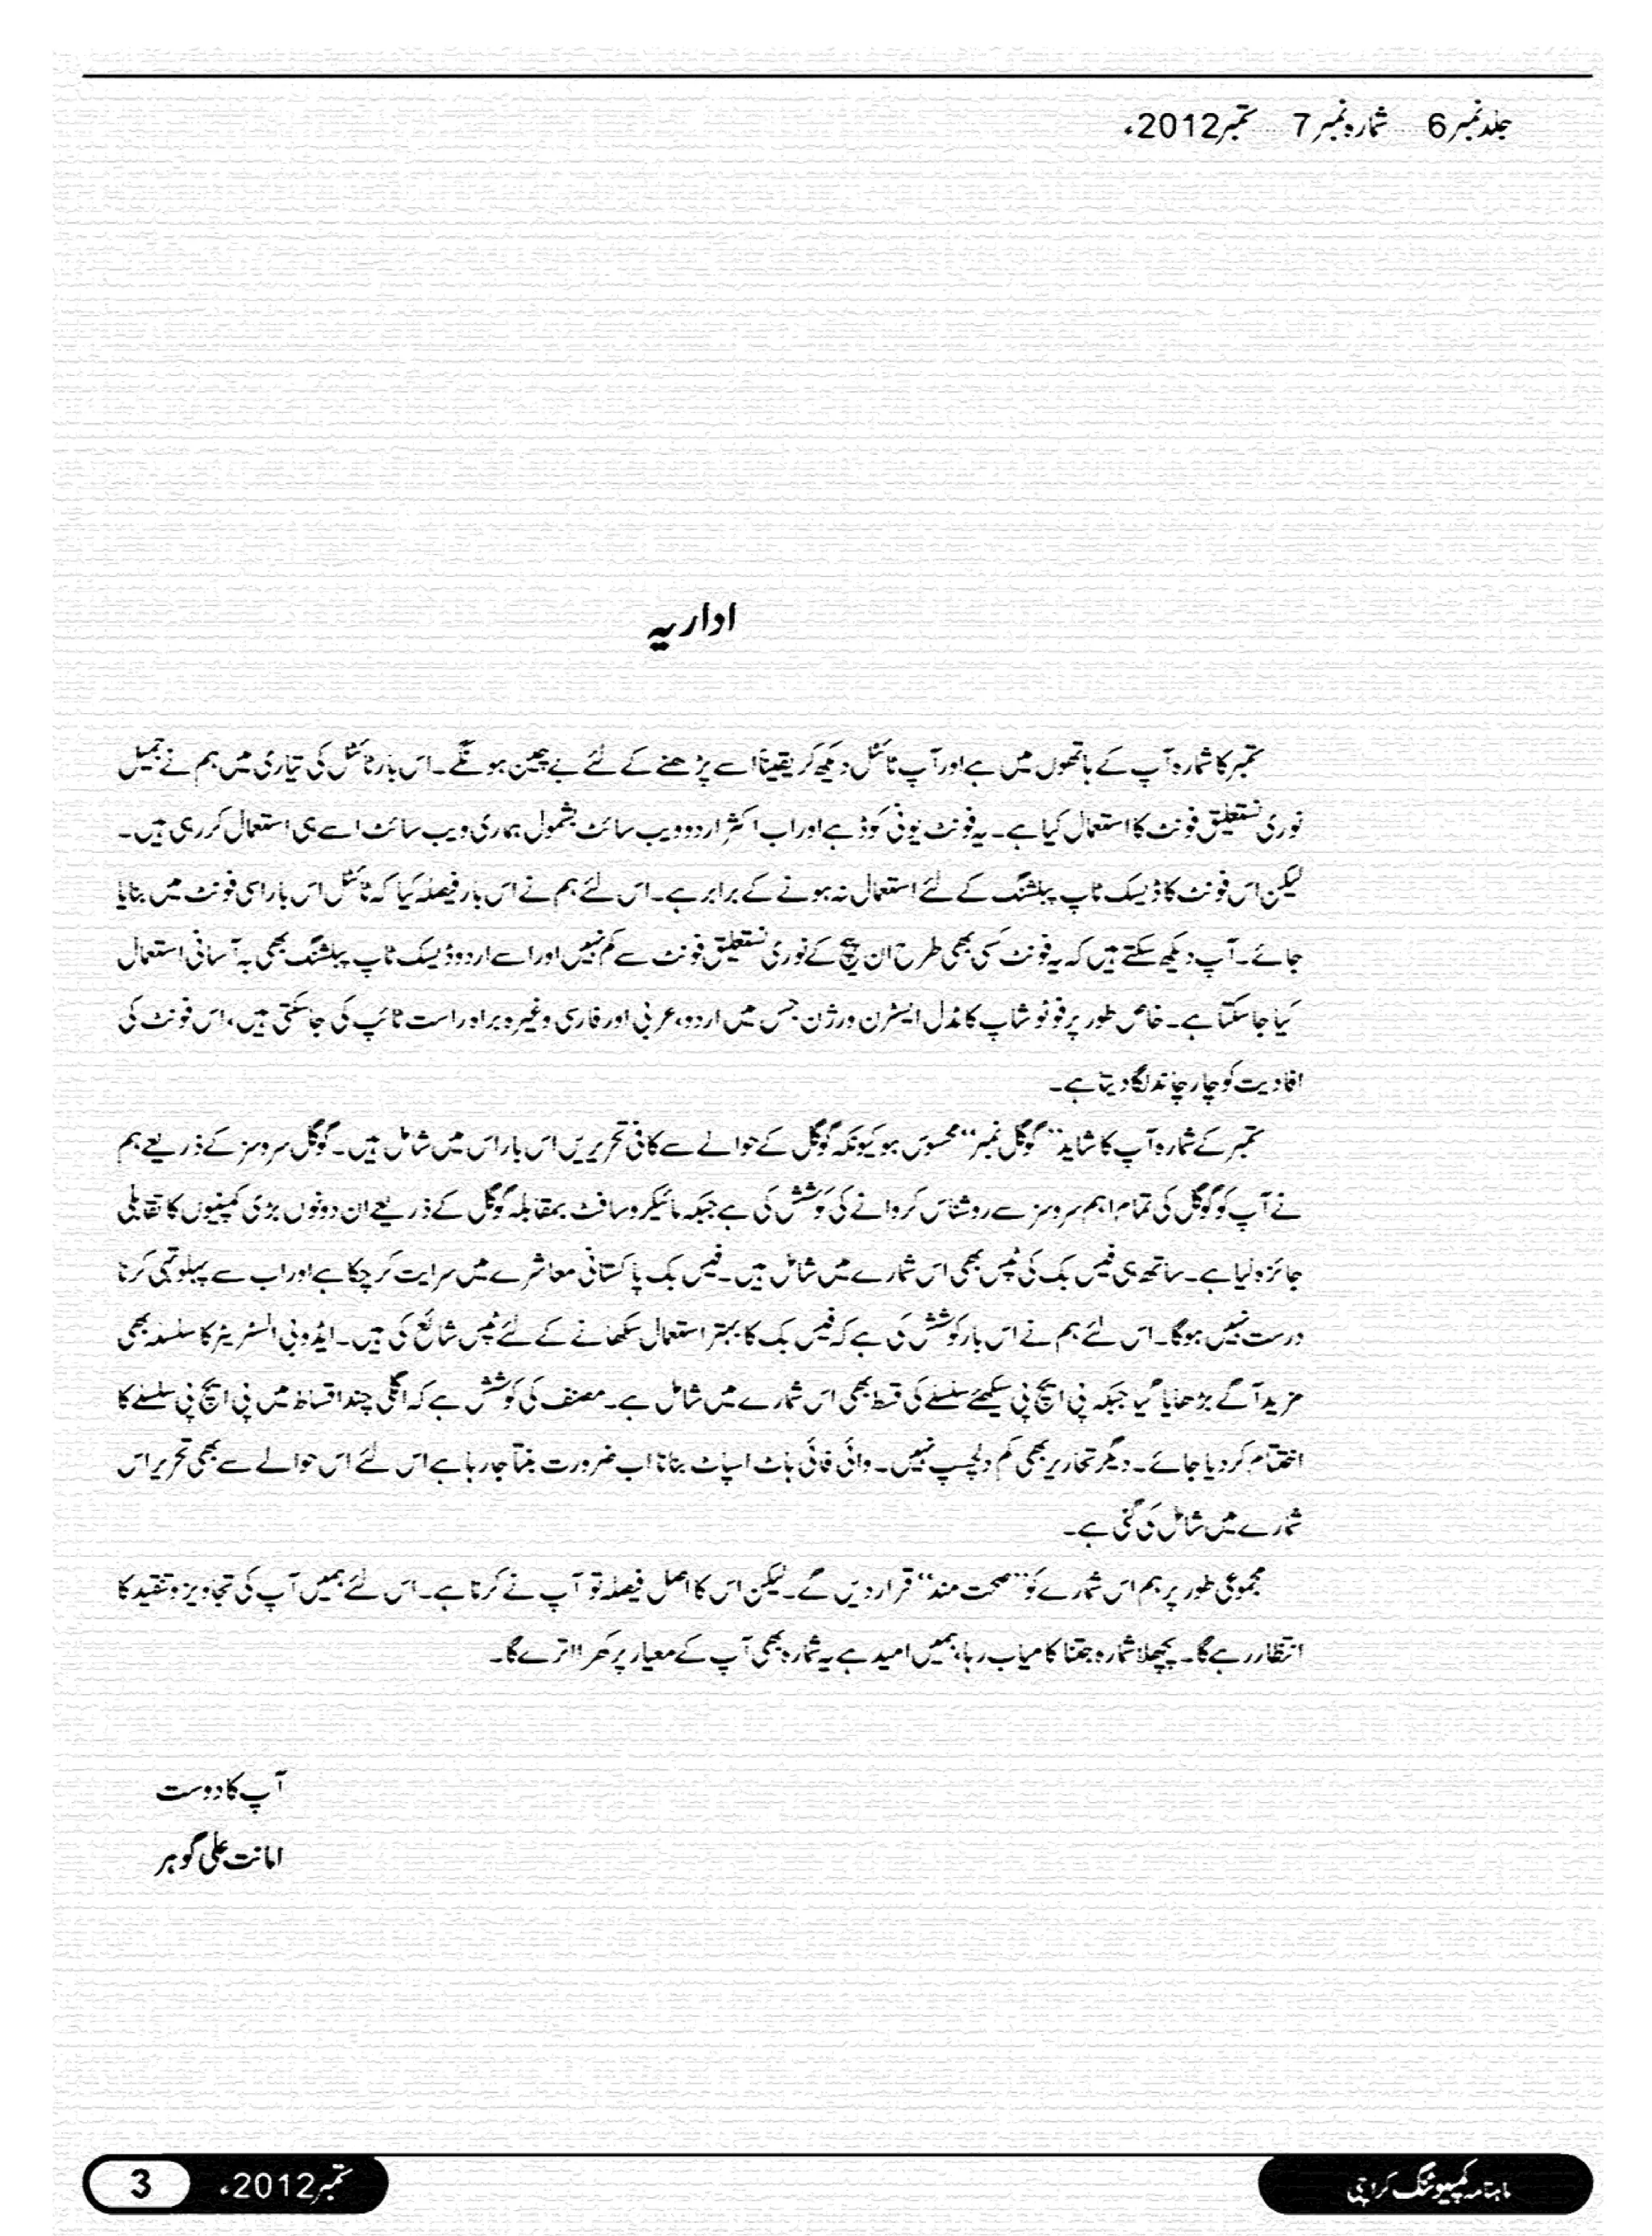 جلد نمبر 6 شمارہ نمبر 7 ستمبر 2012ء
اداریہ
ستمبر کا شمارہ آپ کے ہاتھوں میں ہے اور آپ ٹائٹل دیکھ کر یقیناً اسے پڑھنے کے لئے بے چین ہونگے۔ اس بار ٹائٹل کی تیاری میں ہم نے جمیل
نوری نستعلیق فونٹ کا استعمال کیا ہے۔ یہ فونٹ یونی کوڈ ہے اور اب اکثر اردو ویب سائٹ بشمول ہماری ویب سائٹ اسے ہی استعمال کر رہی ہیں۔
لیکن اس فونٹ کا ڈیسک ٹاپ پبلشنگ کے لئے استعمال نہ ہونے کے برابر ہے۔ اس لئے ہم نے اس بار فیصلہ کیا کہ ٹائٹل اس بار اسی فونٹ میں بنایا
جائے۔ آپ دیکھ سکتے ہیں کہ یہ فونٹ کسی بھی طرح ان پیج کے نوری نستعلیق فونٹ سے کم نہیں اور اسے اردو ڈیسک ٹاپ پبلشنگ بھی بہ آسانی استعمال
کیا جاسکتا ہے۔ خاص طور پر فوٹو شاپ کا مڈل ایسٹرن ورژن جس میں اردو، عربی اور فارسی وغیرہ براہ راست ٹائپ کی جاسکتی ہیں، اس فونٹ کی
افادیت کو چار چاند لگا دیتا ہے۔
ستمبر کے شمارہ آپ کا شاید ’’گوگل نمبر‘‘ محسوس ہو کیونکہ گوگل کے حوالے سے کافی تحریریں اس بار اس میں شامل ہیں۔ گوگل سروسز کے ذریعے ہم
نے آپ کو گوگل کی تمام اہم سروسز سے روشناس کروانے کی کوشش کی ہے جبکہ مائیکروسافٹ بمقابلہ گوگل کے ذریعے ان دونوں بڑی کمپنیوں کا تقابلی
جائزہ لیا ہے۔ ساتھ ہی فیس بک کی ٹپس بھی اس شمارے میں شامل ہیں۔ فیس بک پاکستانی معاشرے میں سرایت کر چکا ہے اور اب سے پہلوتہی کرنا
درست نہیں ہوگا۔ اس لئے ہم نے اس بار کوشش کی ہے کہ فیس بک کا بہتر استعمال سکھانے کے لئے ٹپس شائع کی ہیں۔ ایڈوبی السٹریٹر کا سلسلہ بھی
مزید آگے بڑھایا گیا جبکہ پی ایچ پی سیکھئے سلسلے کی قسط بھی اس شمارے میں شامل ہے۔ مصنف کی کوشش ہے کہ اگلی چند اقساط میں پی ایچ پی سلسلے کا
اختتام کر دیا جائے۔ دیگر تحاریر بھی کم دلچسپ نہیں۔ وائی فائی ہاٹ اسپاٹ بنانا اب ضرورت بنتا جا رہا ہے اس لئے اس حوالے سے بھی تحریر اس
شمارے میں شامل کی گئی ہے۔
مجموعی طور پر ہم اس شمارے کو ’’صحت مند‘‘ قرار دیں گے۔ لیکن اس کا اصل فیصلہ تو آپ نے کرنا ہے۔ اس لئے ہمیں آپ کی تجاویز و تنقید کا
انتظار رہے گا۔ پچھلا شمارہ جتنا کامیاب رہا، ہمیں امید ہے یہ شمارہ بھی آپ کے معیار پر کھرا اترے گا۔
آپ کا دوست
امانت علی گوہر
ماہنامہ کمپیوٹنگ کراچی
ستمبر 2012ء
3